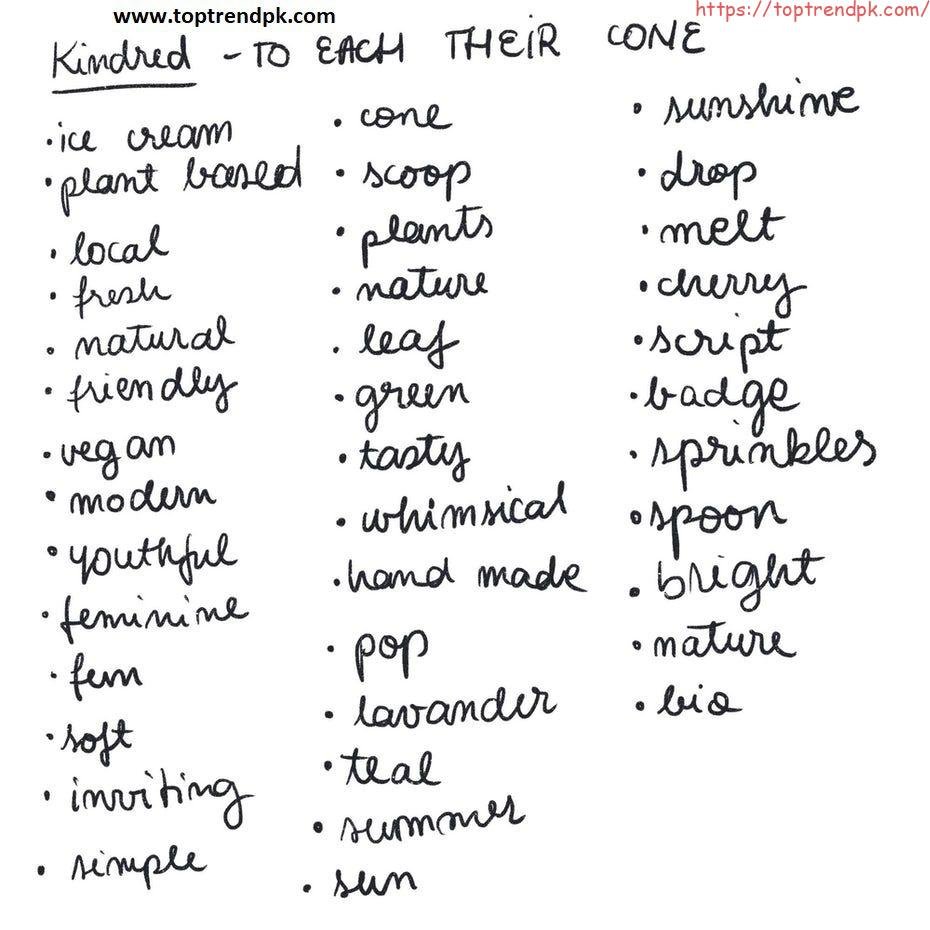 www.toptrendpk.com
https://toptrendpk.com/
Kindred - TO EACH THEIR CONE
• ice cream
• plant based
• local
• fresh
• natural
• friendly
• vegan
• modern
• youthful
• feminine
• fem
• soft
• inviting
• simple
• cone
• scoop
• plants
• nature
• leaf
• green
• tasty
• whimsical
• hand made
• pop
• lavander
• teal
• summer
• sun
• sunshine
• drop
• melt
• cherry
• script
• badge
• sprinkles
• spoon
• bright
• nature
• bio